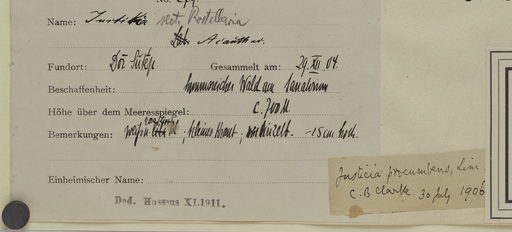 Name: Justicia sect. Rostellaria
Acanthac.
Fundort: Doi Sutep. Gesammelt am: 29. XII 04.
Beschaffenheit: humusreicher Wald am Sanatorium
Höhe über dem Meeresspiegel: c. 700 M.
Bemerkungen: kleines Kraut, vereinzelt. -15 cm hoch.
Einheimischer Name:
Ded. Hosseus XI.1911.
Justicia procumbens, Linn
C. B. Clarke 30 July 1906